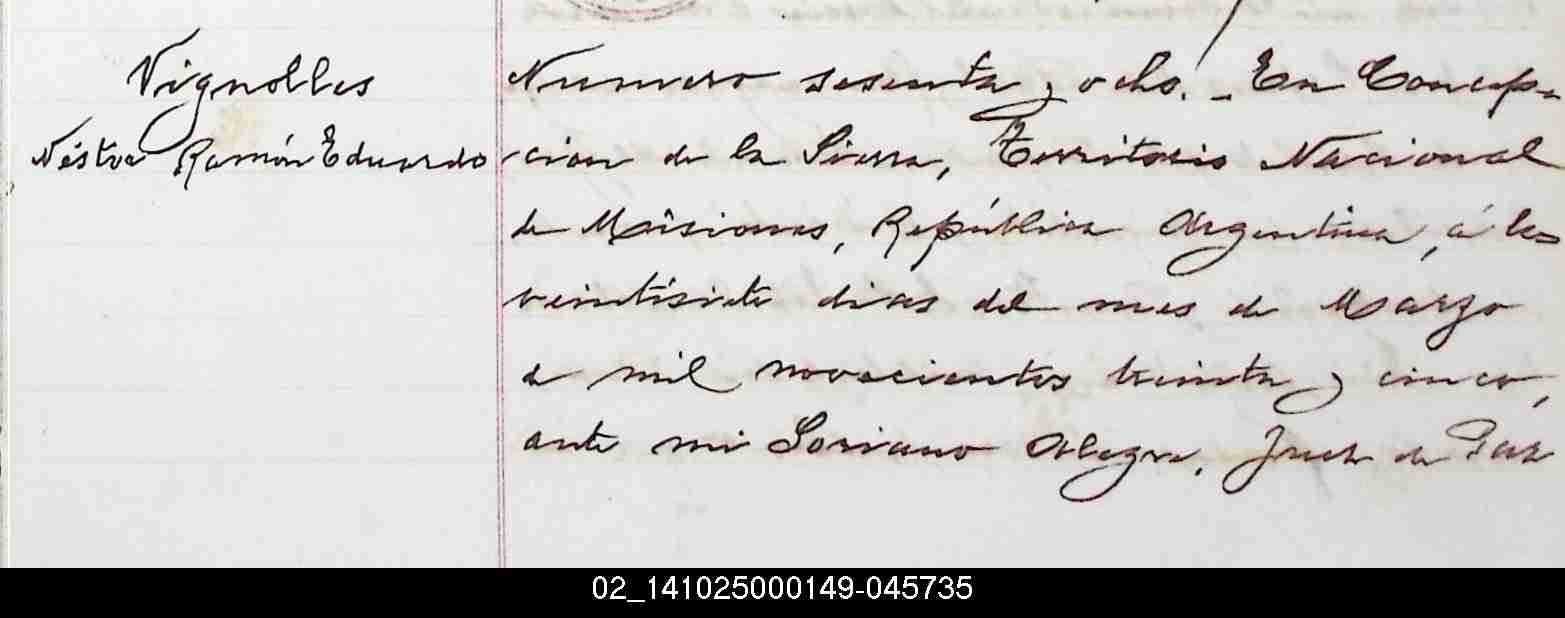 Vignolles
Néstor Ramón Eduardo
Numero sesenta y ocho. - En Concep=
cion de la Sierra, Territorio Nacional
de Misiones, República Argentina, á los
veintisiete dias del mes de Marzo
de mil novecientos treinta y cinco,
ante mi Soriano Alegre, Juez de Paz
02_141025000149-045735